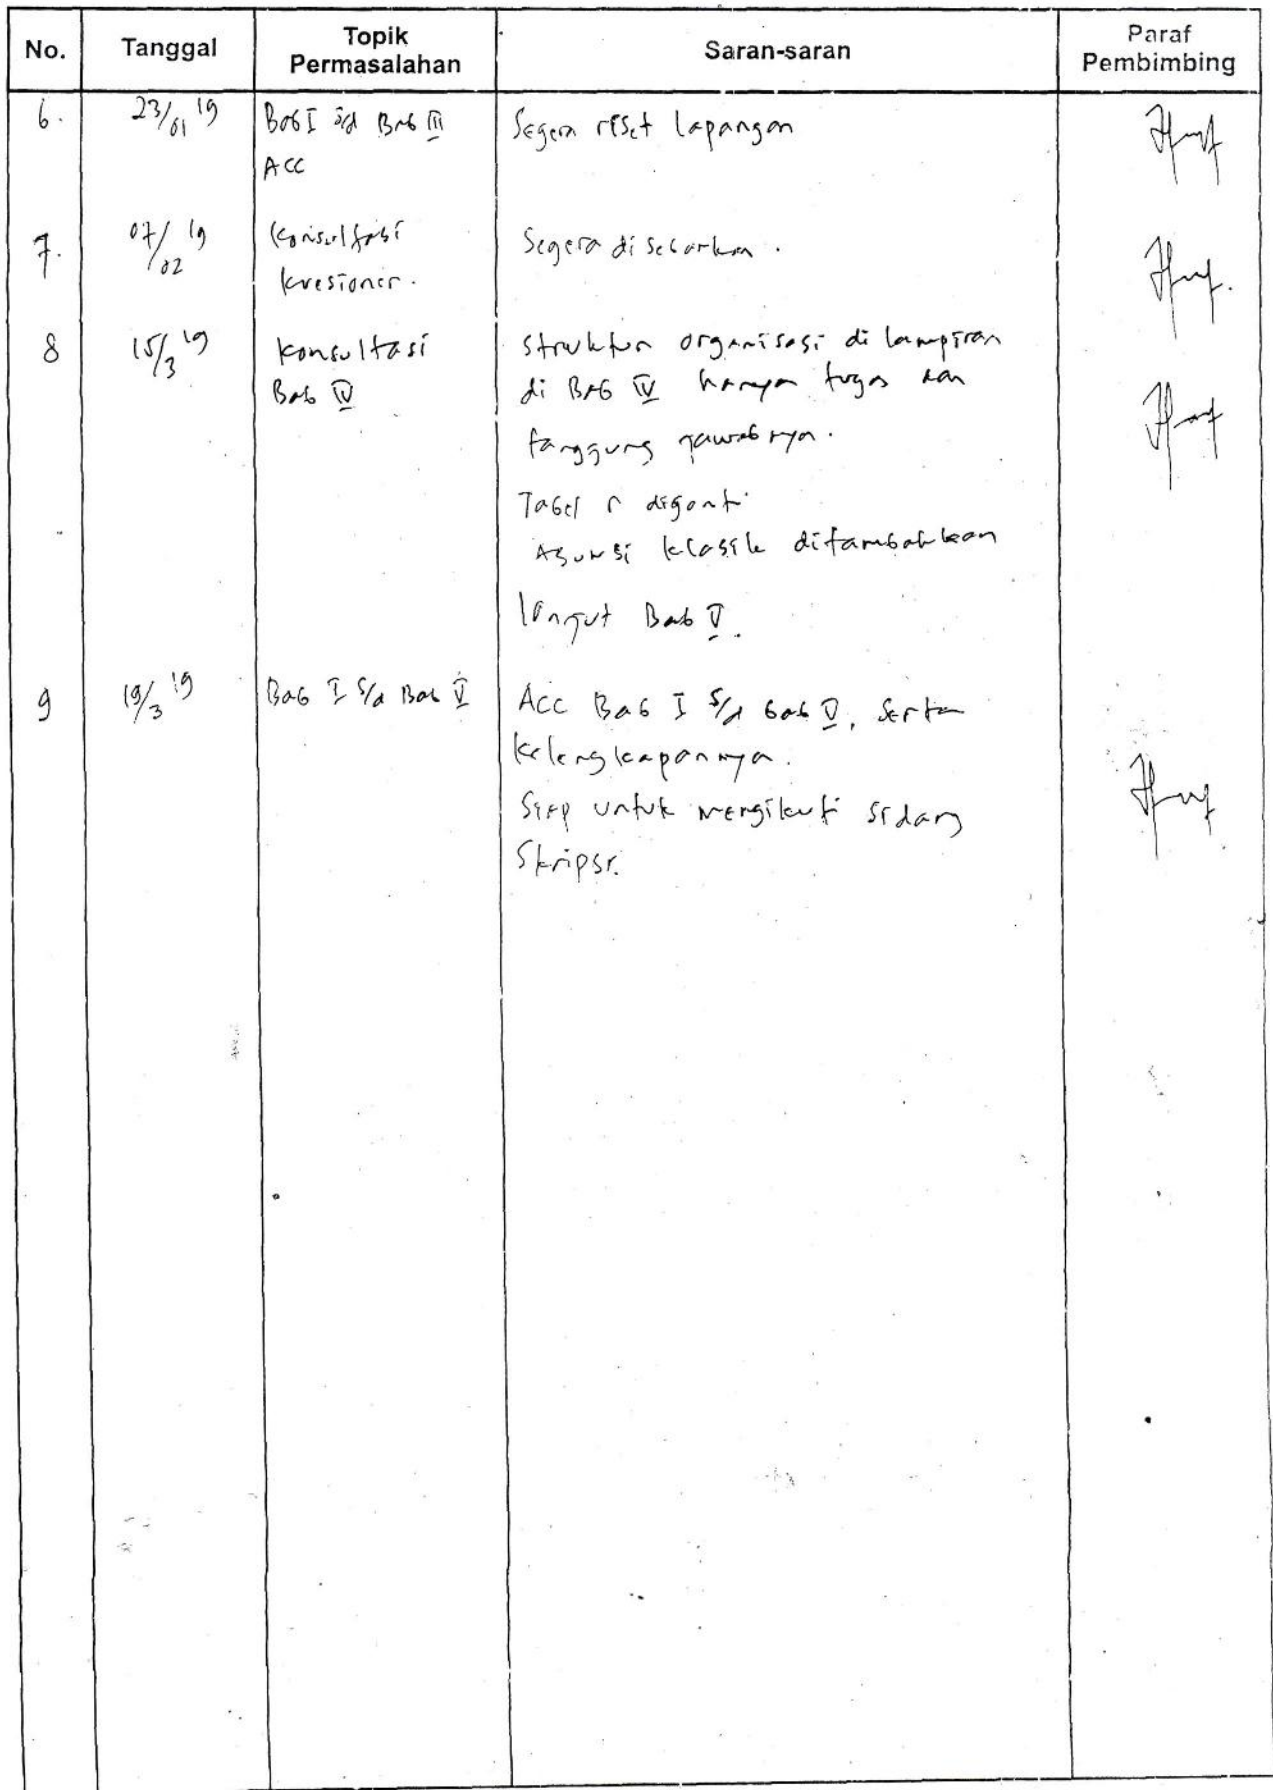 No. Tanggal Topik Permasalahan Saran-saran Paraf Pembimbing
6. 23/01 19 Bab I s/d Bab III Segera riset lapangan
ACC
7. 07/02 19 Konsultasi Segera disebarkan.
kuesioner.
8 15/3 19 Konsultasi Struktur organisasi di lampiran
Bab IV di Bab IV hanya tugas dan
tanggung jawabnya.
Tabel r diganti
Asumsi klasik ditambahkan
lanjut Bab V.
9 19/3 19 Bab I s/d Bab V ACC Bab I s/d bab V, serta
kelengkapannya.
Siap untuk mengikuti sidang
Skripsi.